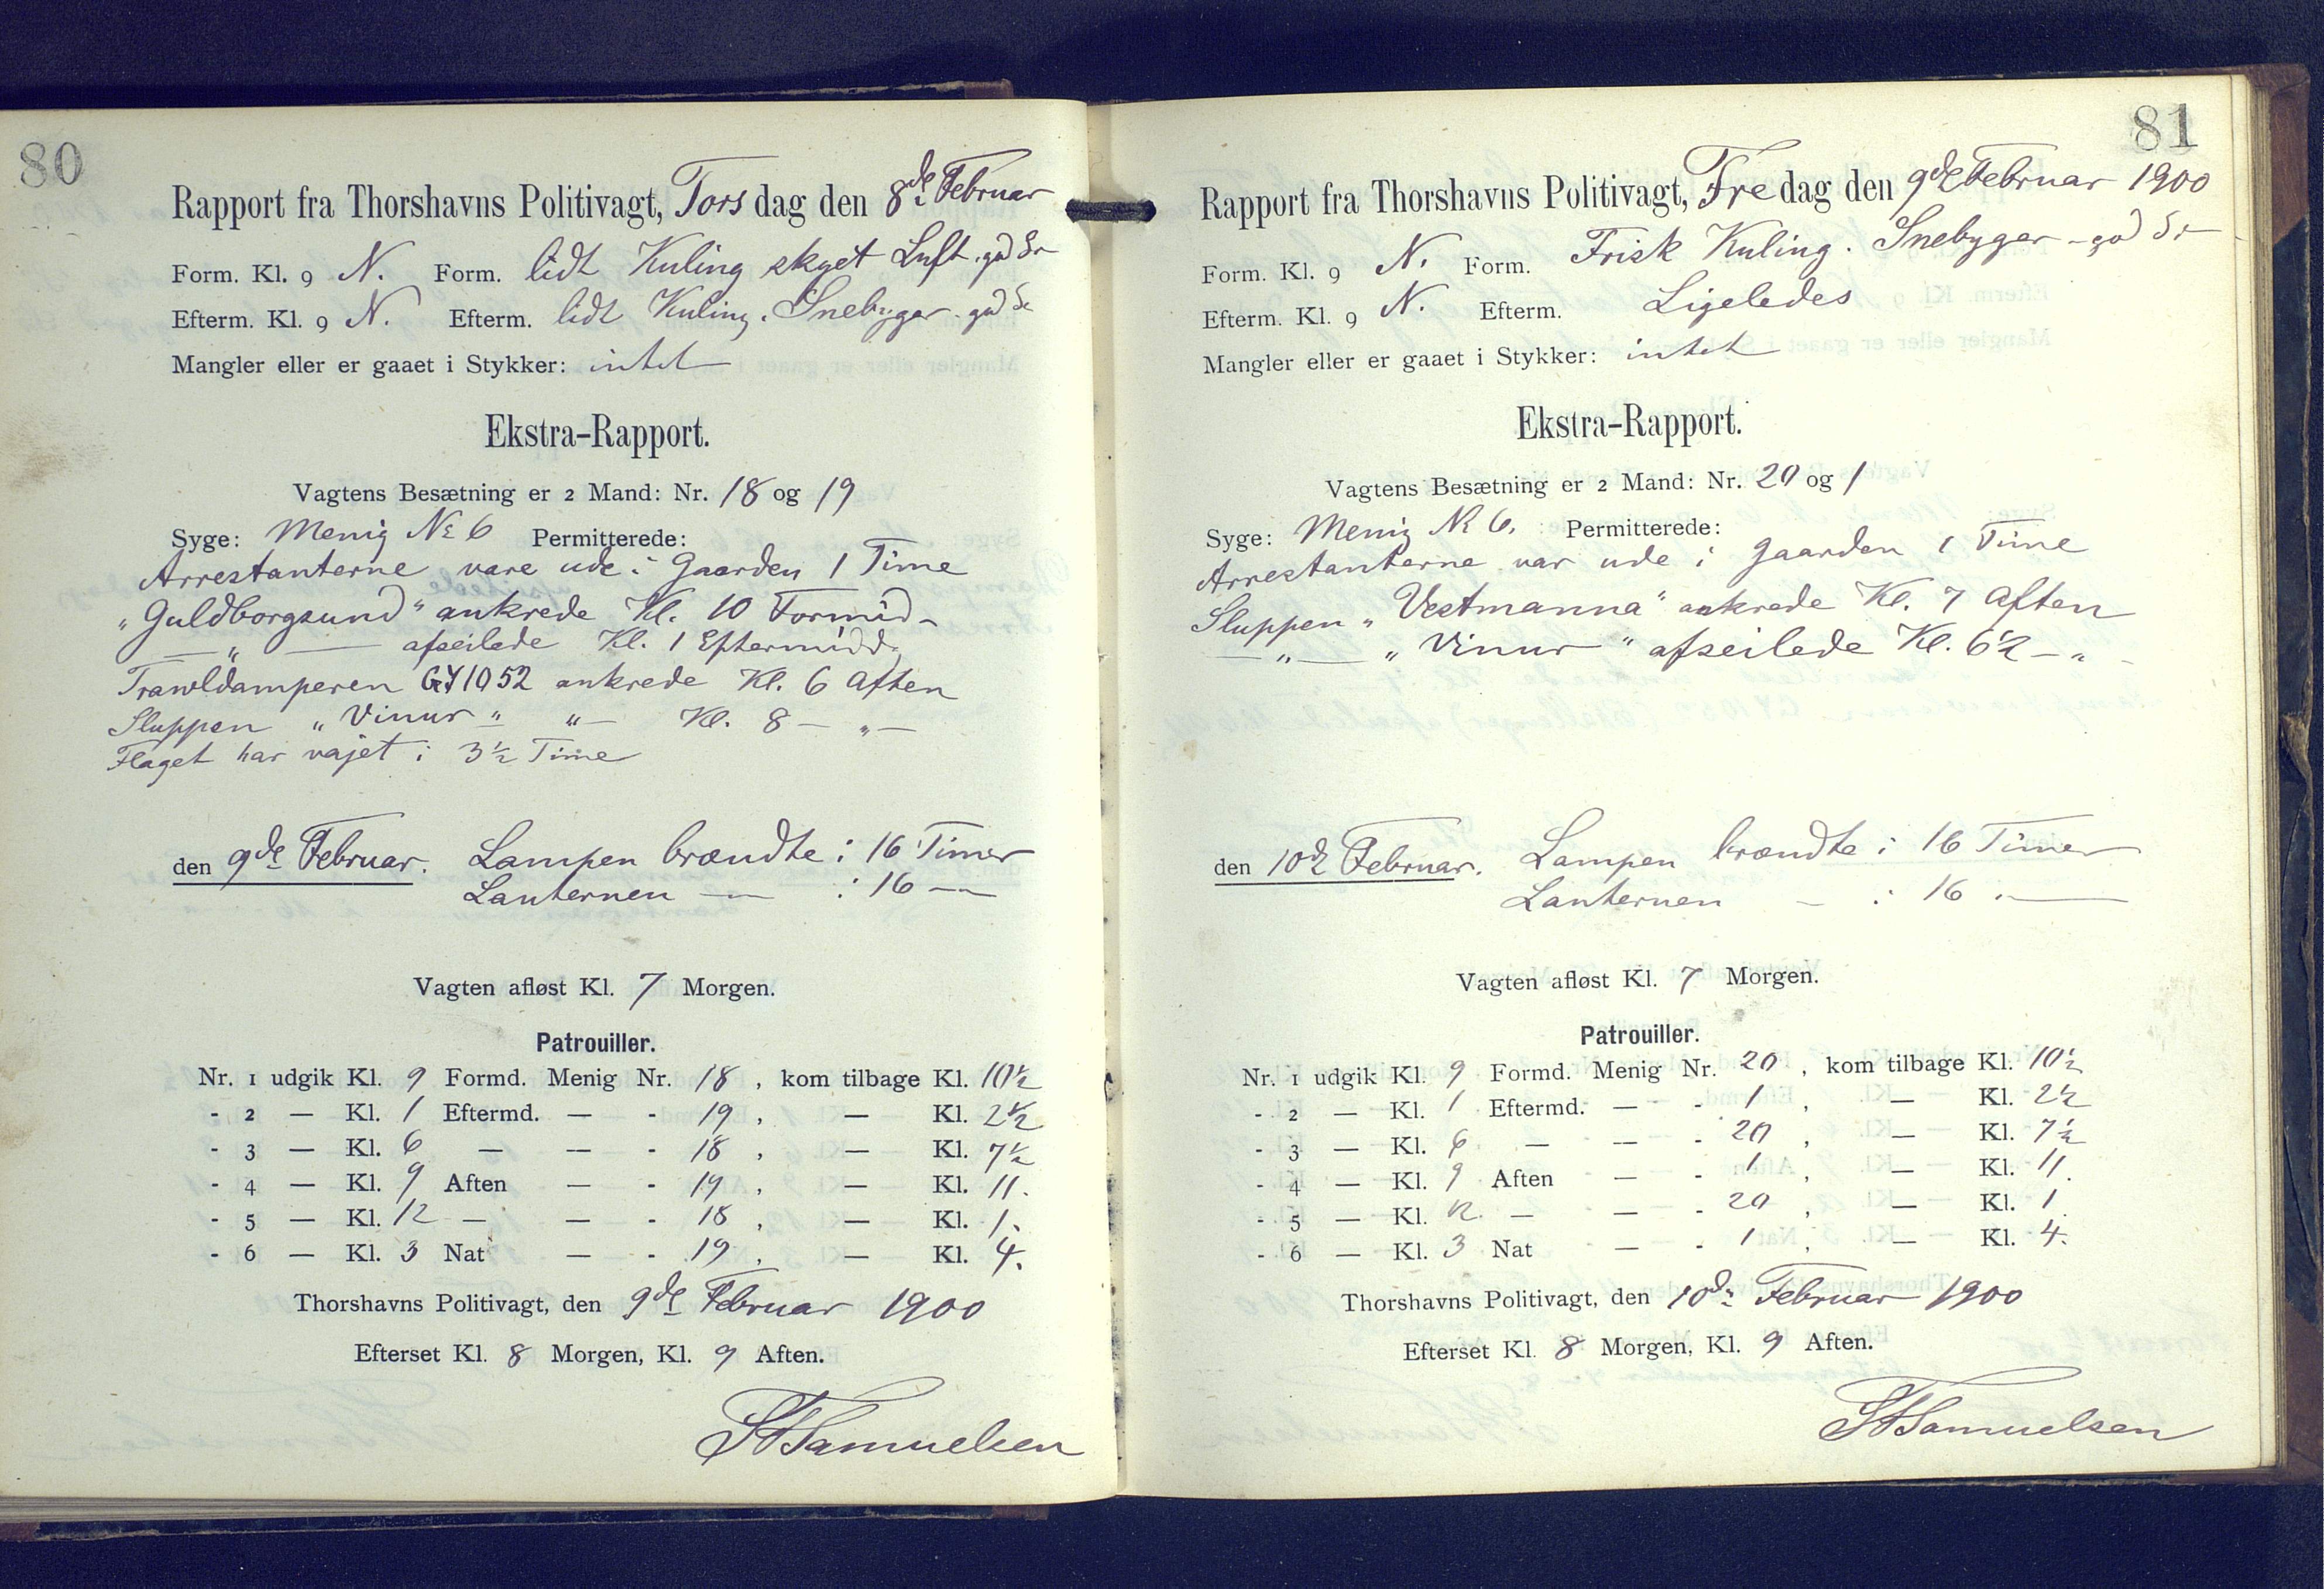 80
Rapport fra Thorshavns Politivagt, Torsdag den 8de Februar
Form. Kl. 9 N. Form. lidt Kuling skyet Luft. god
Efterm. Kl. 9 N. Efterm. lidt Kuling. Snebyger. god
Mangler eller er gaaet i Stykker: intet
Ekstra-Rapport.
Vagtens Besætning er 2 Mand: Nr. 18 og 19
Syge: Menig No 6 Permitterede:
Arrestanterne vare ude i Gaarden 1 Time
"Guldborgsund" ankrede Kl. 10 Formid-
— " — afseilede Kl. 1 Eftermidd.
Trawldamperen GY1052 ankrede Kl. 6 Aften
Sluppen "Vinur" "— Kl. 8 — " —
Flaget har vajet i 3½ Time
den 9de Februar. Lampen brændte i 16 Timer
Lanternen — i 16 —
Vagten afløst Kl. 7 Morgen.
Patrouiller.
Nr. 1 udgik Kl. 9 Formd. Menig Nr. 18, kom tilbage Kl. 10½
- 2 — Kl. 1 Eftermd. — - 19, — Kl. 2½
- 3 — Kl. 6 — — - 18, — Kl. 7½
- 4 — Kl. 9 Aften — - 19, — Kl. 11.
- 5 — Kl. 12 — — - 18, — Kl. 1.
- 6 — Kl. 3 Nat — - 19, — Kl. 4.
Thorshavns Politivagt, den 9de Februar 1900
Efterset Kl. 8 Morgen, Kl. 9 Aften.
Samuelsen
81
Rapport fra Thorshavns Politivagt, Fredag den 9de Februar 1900
Form. Kl. 9 N. Form. Frisk Kuling. Snebyger - god
Efterm. Kl. 9 N. Efterm. Ligeledes
Mangler eller er gaaet i Stykker: intet
Ekstra-Rapport.
Vagtens Besætning er 2 Mand: Nr. 20 og 1
Syge: Menig No 6. Permitterede:
Arrestanterne var ude i Gaarden 1 Time
Sluppen "Vestmanna" ankrede Kl. 7 Aften
— " — "Vinur" afseilede Kl. 6½ — " -
den 10de Februar. Lampen brændte i 16 Timer
Lanternen - i 16 —
Vagten afløst Kl. 7 Morgen.
Patrouiller.
Nr. 1 udgik Kl. 9 Formd. Menig Nr. 20, kom tilbage Kl. 10½
- 2 — Kl. 1 Eftermd. — - 1, — Kl. 2½
- 3 — Kl. 6 — — - 20, — Kl. 7½
- 4 — Kl. 9 Aften — - 1, — Kl. 11.
- 5 — Kl. 12. — — - 20, — Kl. 1.
- 6 — Kl. 3 Nat — - 1, — Kl. 4.
Thorshavns Politivagt, den 10de Februar 1900
Efterset Kl. 8 Morgen, Kl. 9 Aften.
Samuelsen